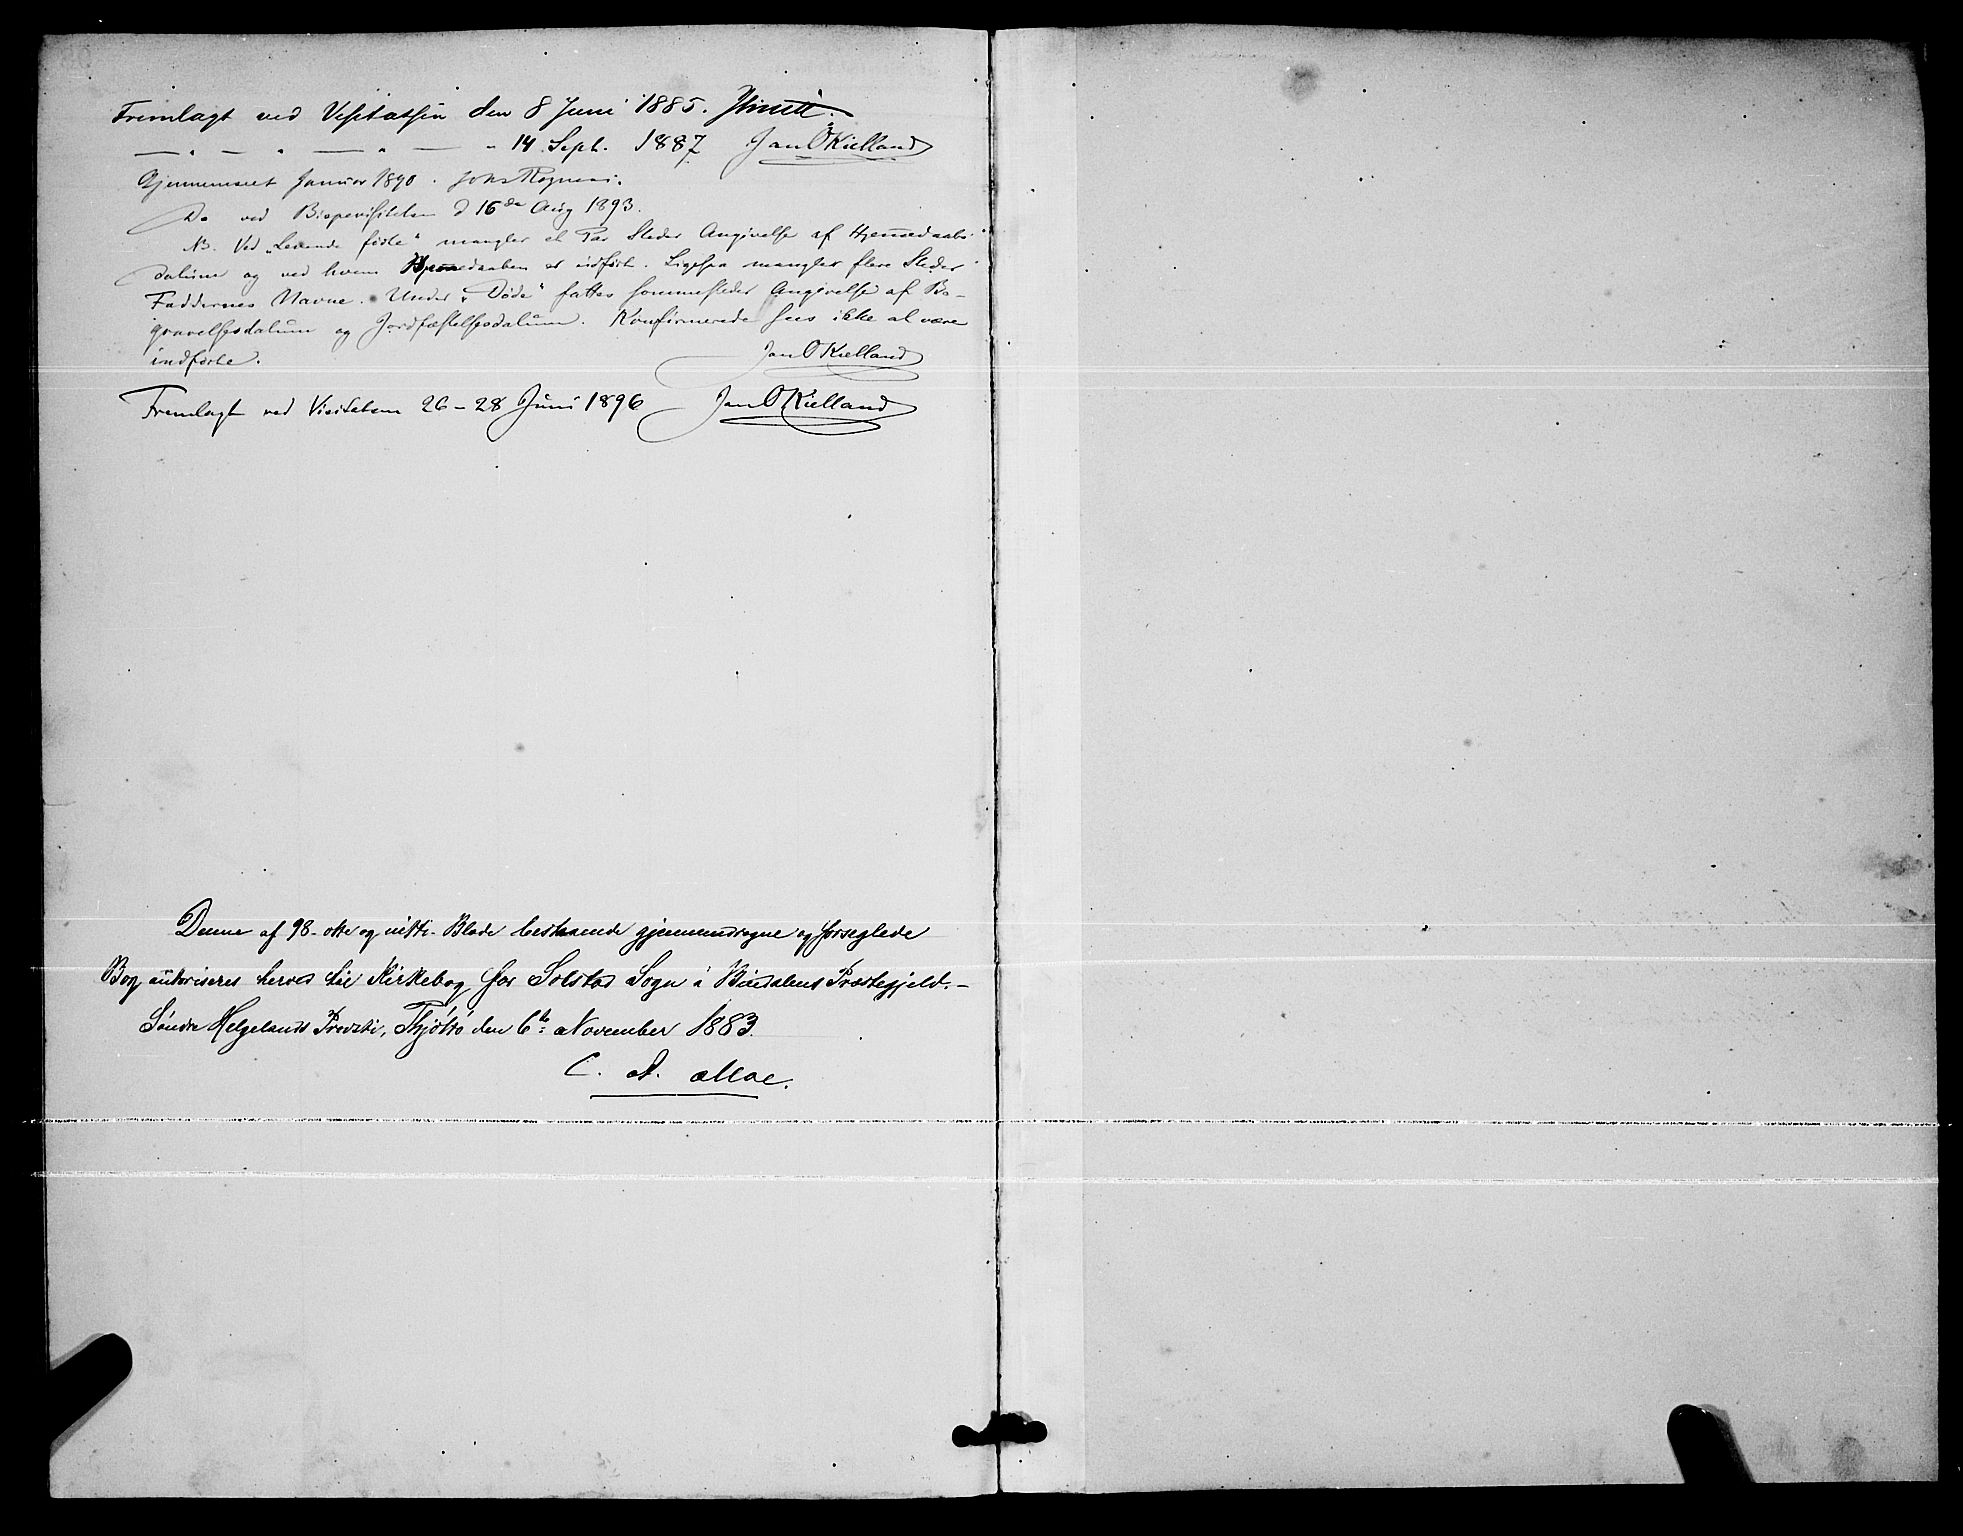 Fremlagt ved Visitatsen den 8 Juni 1885.
— „ — „ — „ — „ 14. Sept. 1887 Jan O Kielland
Gjennemseet Januar 1890. Johs Rognæs.
Do ved Bispevisitatsen d 16de Aug 1893.
NB. Ved „Levende fødte" mangler et Par Steder Angivelse af Hjemmedaabs-
datum og ved hvem Hjemmedaaben er indført. Ligesaa mangler flere Steder
Faddernes Navne. Under „Døde" fattes sommesteder Angivelse af Be-
gravelsesdatum og Jordfæstelsesdatum. Konfirmerede sees ikke at være
indførte. Jan O Kielland
Fremlagt ved Visitatsen 26-28 Juni 1896 Jan O Kielland
Denne af 98 - otte og nitti - Blade bestaaende gjennemdragne og forseglede
Bog autoriseres herved til Kirkebog for Solstad Sogn i Bindalens Præstegjeld. -
Søndre Helgelands Provsti, Thjøttø den 6te November 1883.
C. A. Moe.